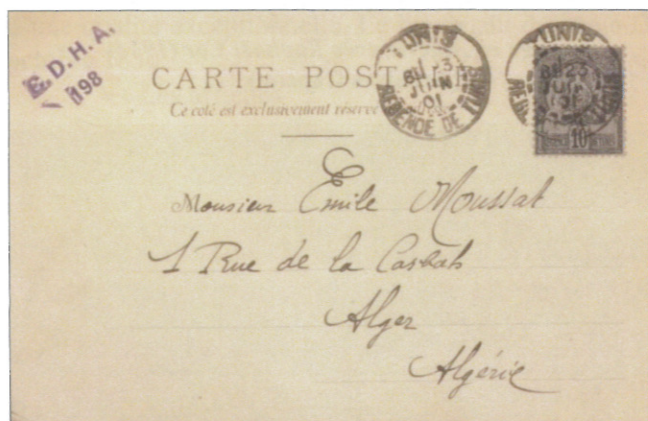 E.D.H.A.
198
CARTE POSTALE
Ce coté est exclusivement réservé
TUNIS
23
JUIN
01
REGENCE DE TUNIS
TUNIS
23
JUIN
01
10
Monsieur Emile Moussat
1 Rue de la Casbah
Alger
Algérie